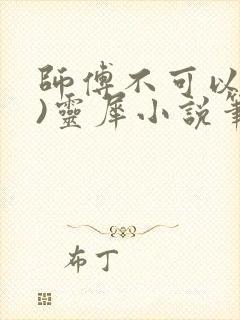 師傅不可以
)靈犀小說
布丁